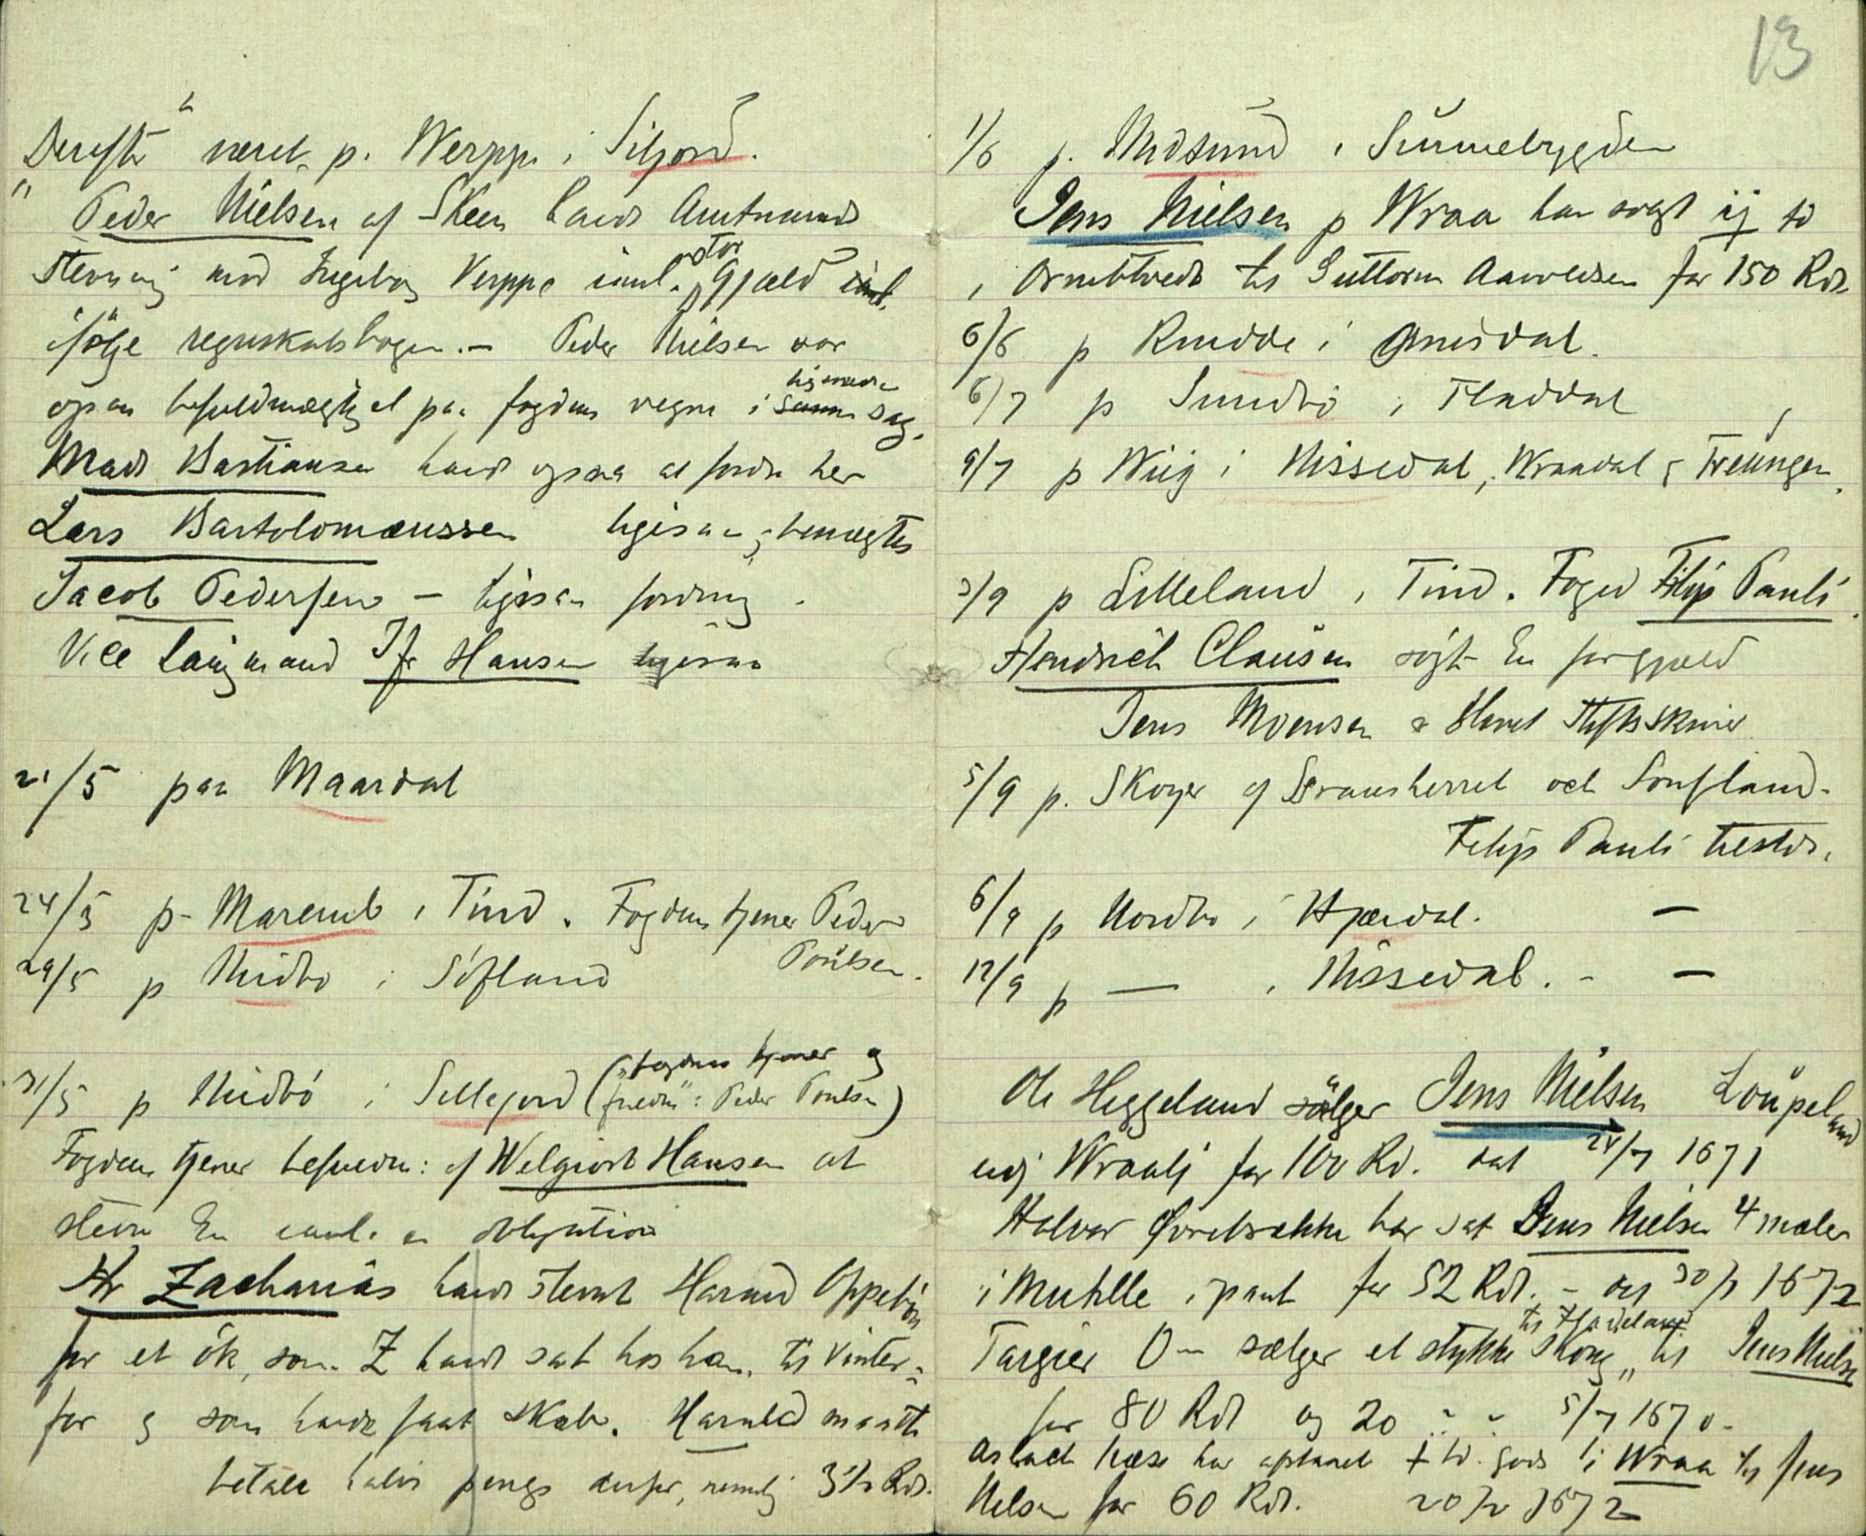 Derefter været p. Werpp i Siljord.
" Peder Nielsen af Skeen havd Amtmands
stevning mod Ingeborg Verppe for gjæld
ifölge regnskabsbogen. — Peder Nielsen var
ogsaa befuldmægtiget paa fogdens vegne i lignende sag.
Mads Bastiansen havd ogsaa at fordre her
Lars Bartolomæussen ligesaa, benægtes
Jacob Pedersen — ligesaa fordring.
Vice laugmand Hansen ligesaa
21/5 paa Maardal
24/5 p. Maremb i Tind. Fogdens tjener Peder
Poulsen.
29/5 p Midbo i Söfland
31/5 p Midbö i Sillejord ("fogdens tjener og
fuldm": Peder Poulsen)
Fogdens tjener befuldm: af Welgiort Hansen at
stevne En anl. en obligation
Hr Zacharias havd stevnt Harald Oppebön
for et ök, som Z havd sat hos ham til vinter-
for og som havde faat skab. Harald maatte
betale halv penge derfor, nemlig 3½ Rdr.
13
1/6 p. Midsund i Sunnebygden
Jens Nielsen p Wraa har solgt ij td
i Ormbtvedt til Guttorm Aavoldsen for 150 Rdr
6/6 p Rmdde i Amidal.
6/7 p Sundbö i Fladdal
9/7 p Wiig i Nissedal, Wraadal og Treungen.
3/9 p Lilleland i Tind. Foged Filip Pauli.
Hendrich Clausen søgt En for gjæld
Jens Moensen Stiftsskriver
5/9 p. Skoger af Gransherret och Houfland.
Filip Pauli tilstede.
6/9 p Nordbo i Hjærdal. —
12/9 p — i Nissedal. - —
Ole Heggeland sælger Jens Nielsen Loupeland
udj Wraalj for 100 Rd. dat 24/7 1671
Halvor Øvrebække har sat Jens Nielsen 4 mæler
i Mutille i pant for 52 Rdr. — 30/7 1672
Targier O— sælger et stykke skoug til Jens Niels.
for 80 Rdr og 20 " " 5/7 1670.
Aslach Næse har afstaaet 1 td. gods i Wraa til Jens
Nielsen for 60 Rdr. 20/2 1672